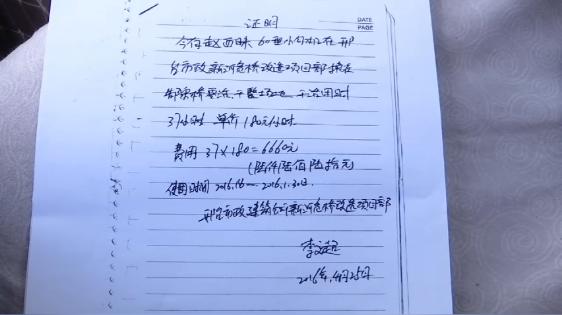 证明
DATE
PAGE
今有赵西昧60型小勾机在邢
台市政新河危桥改造项目部
37小时 单价180元/小时
费用 37×180=6660元
(陆仟陆佰陆拾元)
使用时间 2016.1.6—2016.1.30日.
邢台市政建筑公司新河危桥改造项目部
李
2016年.4月25日